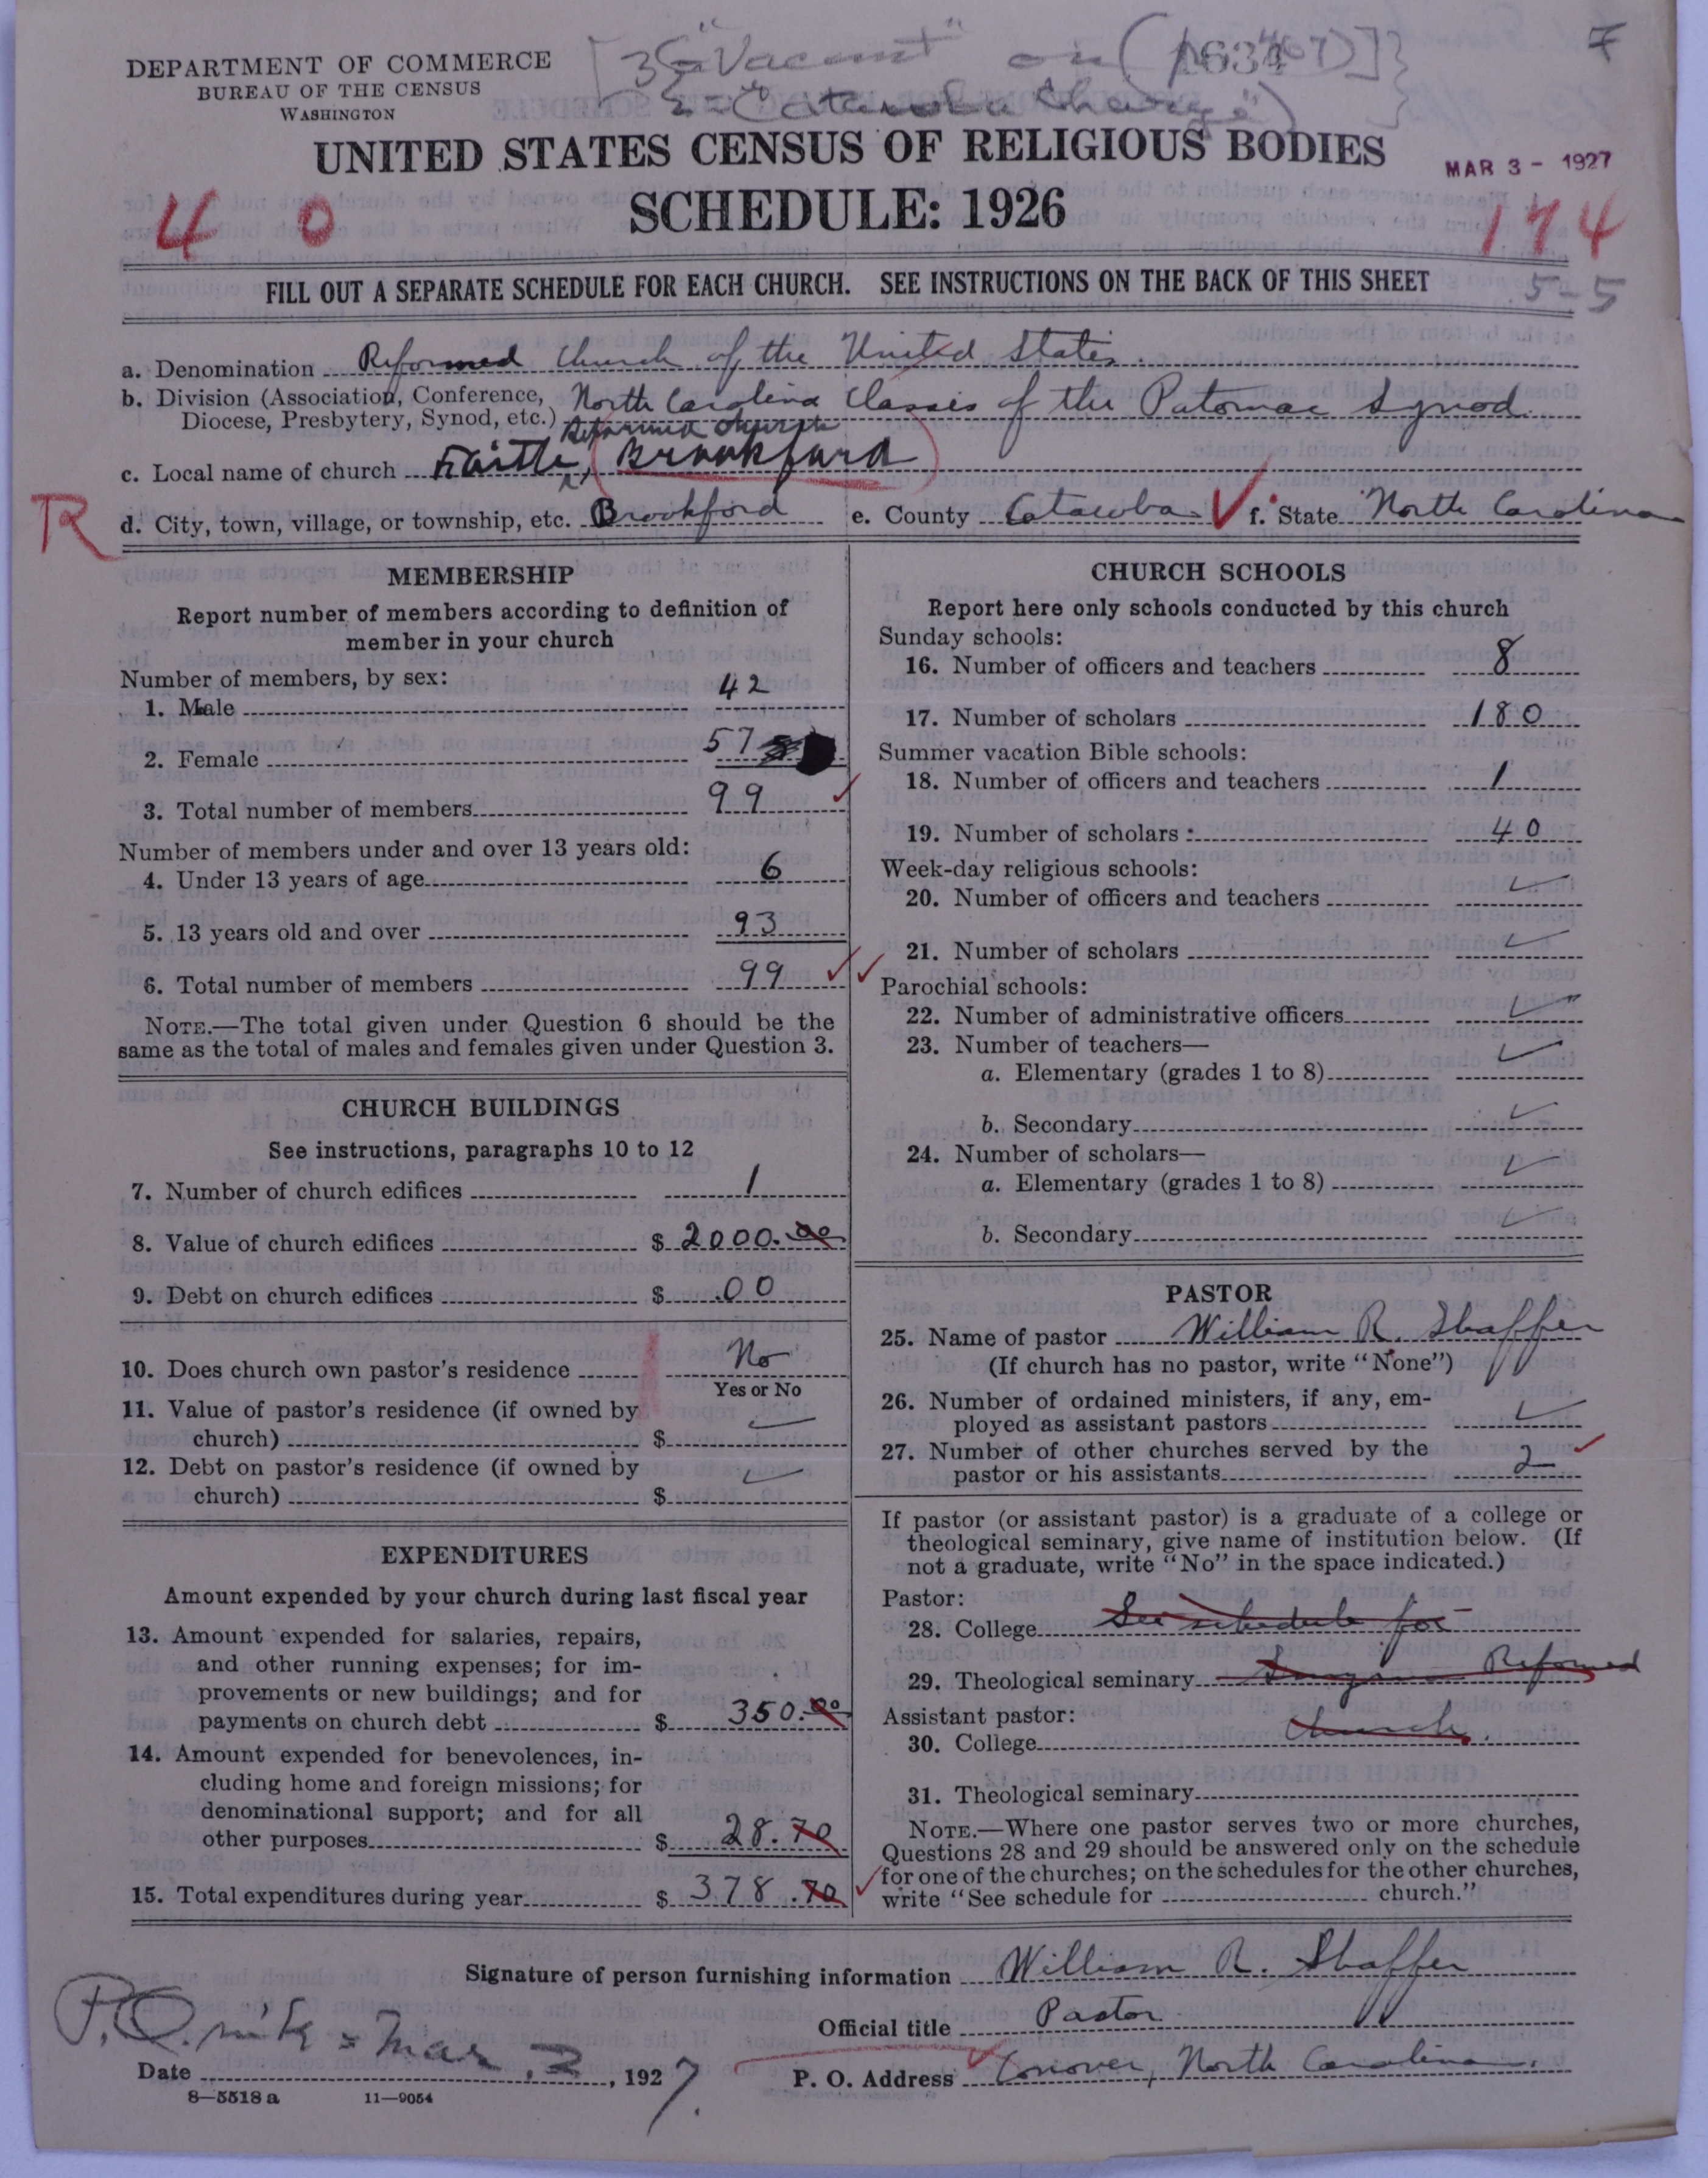 DEPARTMENT OF COMMERCE
BUREAU OF THE CENSUS
WASHINGTON
"Vacant" on
"Catawba Charge"
7
UNITED STATES CENSUS OF RELIGIOUS BODIES
MAR 3 - 1927
4 0
SCHEDULE: 1926
174
FILL OUT A SEPARATE SCHEDULE FOR EACH CHURCH. SEE INSTRUCTIONS ON THE BACK OF THIS SHEET
5-5
a. Denomination Reformed Church of the United States.
b. Division (Association, Conference, Diocese, Presbytery, Synod, etc.) North Carolina Classis of the Potomac Synod.
Reformed Church
c. Local name of church Faith, Brookford
R
d. City, town, village, or township, etc. Brookford e. County Catawba f. State North Carolina
MEMBERSHIP
Report number of members according to definition of
member in your church
Number of members, by sex:
1. Male 42
2. Female 57
3. Total number of members 99
Number of members under and over 13 years old:
4. Under 13 years of age 6
5. 13 years old and over 93
6. Total number of members 99
NOTE.—The total given under Question 6 should be the
same as the total of males and females given under Question 3.
CHURCH BUILDINGS
See instructions, paragraphs 10 to 12
7. Number of church edifices 1
8. Value of church edifices $ 2000.00
9. Debt on church edifices $ .00
10. Does church own pastor's residence No
Yes or No
11. Value of pastor's residence (if owned by
church) $
12. Debt on pastor's residence (if owned by
church) $
EXPENDITURES
Amount expended by your church during last fiscal year
13. Amount expended for salaries, repairs,
and other running expenses; for im-
provements or new buildings; and for
payments on church debt $ 350.00
14. Amount expended for benevolences, in-
cluding home and foreign missions; for
denominational support; and for all
other purposes $ 28.70
15. Total expenditures during year $ 378.70
CHURCH SCHOOLS
Report here only schools conducted by this church
Sunday schools:
16. Number of officers and teachers 8
17. Number of scholars 180
Summer vacation Bible schools:
18. Number of officers and teachers 1
19. Number of scholars : 40
Week-day religious schools:
20. Number of officers and teachers
21. Number of scholars
Parochial schools:
22. Number of administrative officers
23. Number of teachers—
a. Elementary (grades 1 to 8)
b. Secondary
24. Number of scholars—
a. Elementary (grades 1 to 8)
b. Secondary
PASTOR
25. Name of pastor William R. Shaffer
(If church has no pastor, write "None")
26. Number of ordained ministers, if any, em-
ployed as assistant pastors
27. Number of other churches served by the
pastor or his assistants 2
If pastor (or assistant pastor) is a graduate of a college or
theological seminary, give name of institution below. (If
not a graduate, write "No" in the space indicated.)
Pastor:
28. College See schedule for
29. Theological seminary Reformed
Assistant pastor:
30. College Church.
31. Theological seminary
NOTE.—Where one pastor serves two or more churches,
Questions 28 and 29 should be answered only on the schedule
for one of the churches; on the schedules for the other churches,
write "See schedule for church."
Signature of person furnishing information William R. Shaffer
Official title Pastor
P.O.
Date Mar. 2, 1927.
P. O. Address Conover, North Carolina.
8—5518 a 11—9054